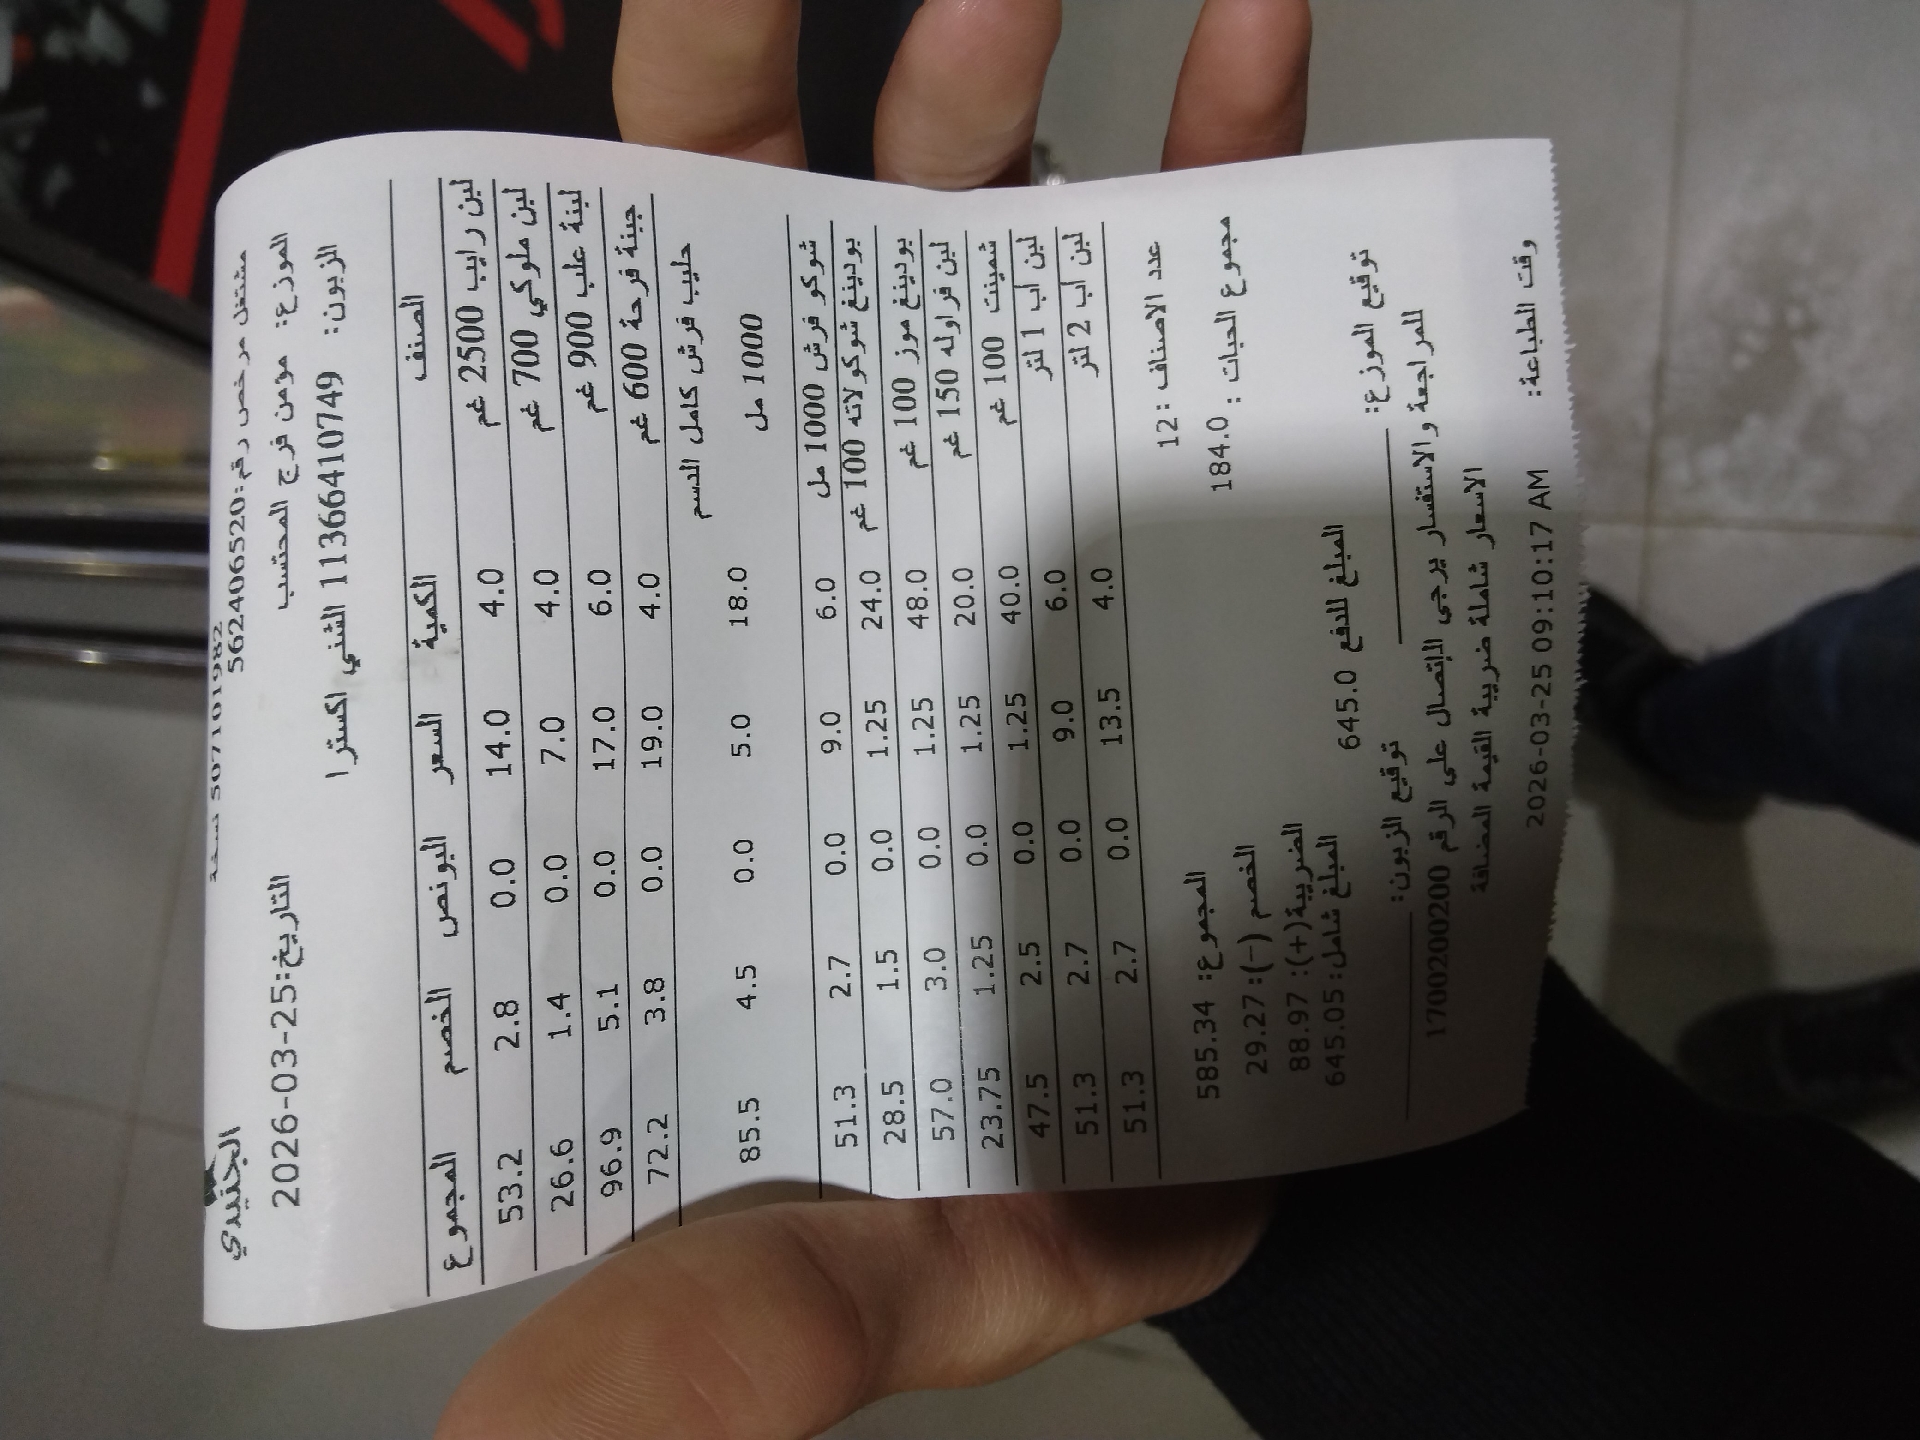 الجنيدي
507101982
مشتغل مرخص رقم:562406520
التاريخ:2026-03-25 الموزع: مؤمن فرج المحتسب
الزبون: 1136641074​9 الشني اكسترا
الصنف الكمية السعر البونص الخصم المجموع
لبن رايب 2500 غم 4.0 14.0 0.0 2.8 53.2
لبن ملوكي 700 غم 4.0 7.0 0.0 1.4 26.6
لبنة علب 900 غم 6.0 17.0 0.0 5.1 96.9
جبنة فرحة 600 غم 4.0 19.0 0.0 3.8 72.2
حليب فرش كامل الدسم
1000 مل 18.0 5.0 0.0 4.5 85.5
شوكو فرش 1000 مل 6.0 9.0 0.0 2.7 51.3
بودينغ شوكولاته 100 غم 24.0 1.25 0.0 1.5 28.5
بودينغ موز 100 غم 48.0 1.25 0.0 3.0 57.0
لبن فراوله 150 غم 20.0 1.25 0.0 1.25 23.75
شمينت 100 غم 40.0 1.25 0.0 2.5 47.5
لبن اب 1 لتر 6.0 9.0 0.0 2.7 51.3
لبن اب 2 لتر 4.0 13.5 0.0 2.7 51.3
عدد الاصناف :12 المجموع: 585.34
مجموع الحبات : 184.0 الخصم (-):29.27
الضريبة(+): 88.97
المبلغ للدفع 645.0 المبلغ شامل:645.05
توقيع الموزع: توقيع الزبون:
للمراجعة والاستفسار يرجى الإتصال على الرقم 1700200200
الاسعار شاملة ضريبة القيمة المضافة
وقت الطباعة: 2026-03-25 09:10:17 AM